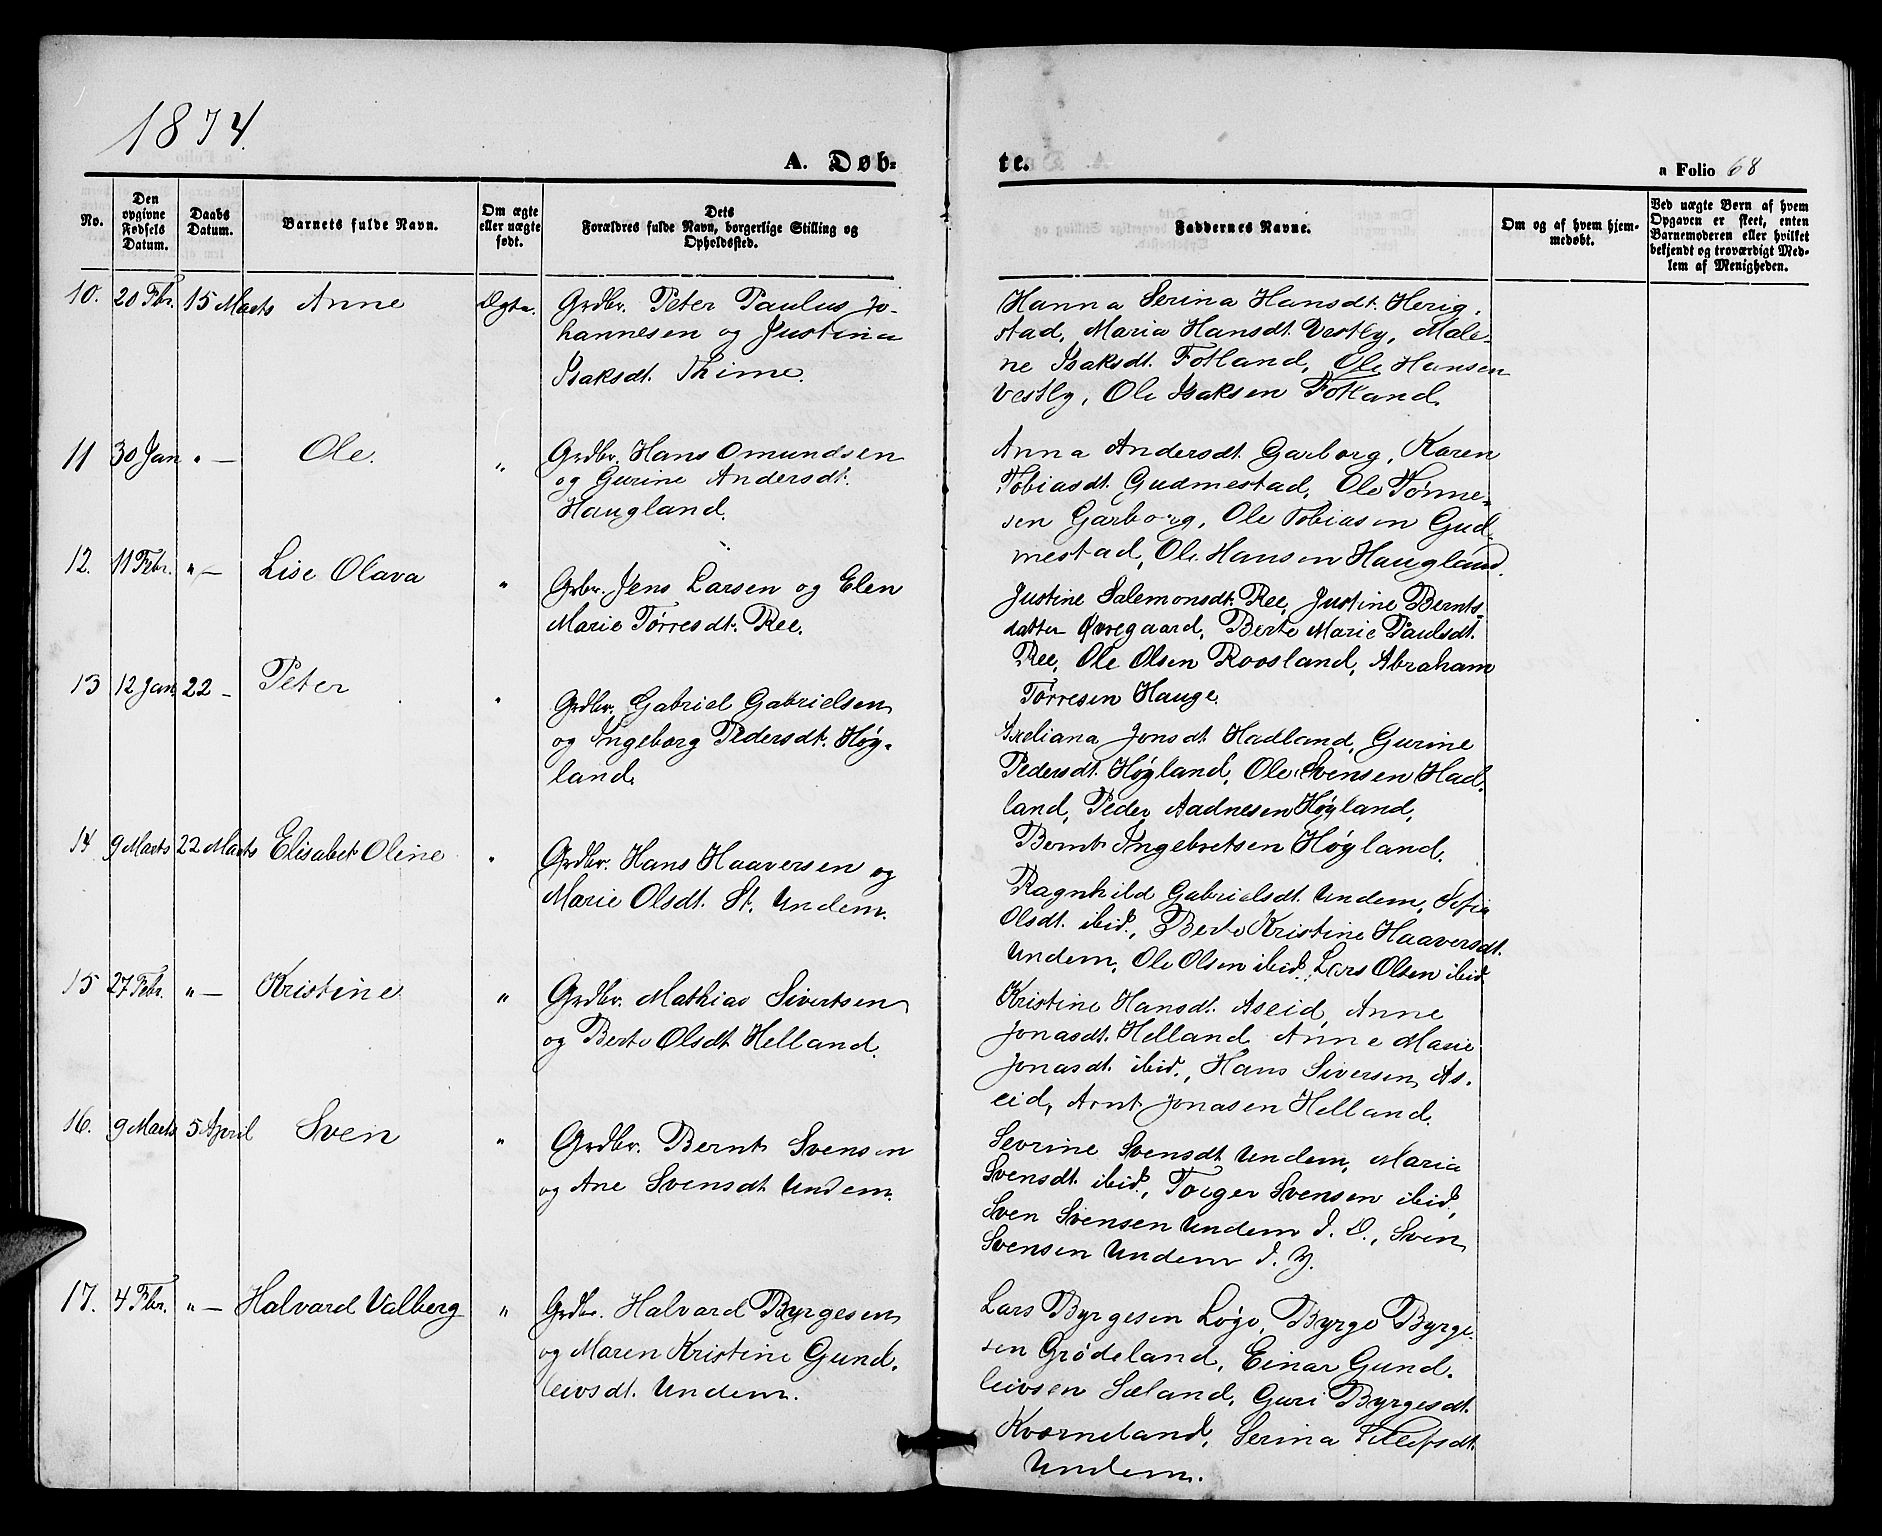 1874.
A. Døb-
te.
a Folio 68
No.
Den opgivne Fødsels Datum.
Daabs Datum.
Barnets fulde Navn.
Om ægte eller uægte født.
Dets Forældres fulde Navn, borgerlige Stilling og Opholdssted.
Faddernes Navne.
Om og af hvem hjemmedøbt.
Ved uægte Børn af hvem Opgaven er skeet, enten Barnemoderen eller hvilket bekjendt og troværdigt Medlem af Menigheden.
10. 20 Fbr. 15 Marts Anne Ægte. Grdbr. Peter Paulus Jo-
hannesen og Justina
Isaksdt. Thime.
Hanna Serina Hansdt. Herig-
stad, Maria Hansdt. Vestly, Male-
ne Isaksdt. Fotland, Ole Hansen
Vestly, Ole Isaksen Fotland.
11 30 Jan " — Ole. " Grdbr. Hans Omundsen
og Gurine Andersdt.
Haugland.
Anna Andersdt. Garborg, Karen
Tobiasdt. Gudmestad, Ole Tønne-
sen Garborg, Ole Tobiasen Gud-
mestad, Ole Hansen Haugland.
12. 11 Febr. " — Lise Olava " Grbr. Jens Larsen og Elen
Marie Tørresdt. Ree.
Justine Salemonsdt. Ree, Justine Bernts-
datter Øvregaard, Berte Marie Paulsdt.
Ree, Ole Olsen Roosland, Abraham
Tørresen Hauge.
13 12 Jan. 22 — Peter " Grdbr. Gabriel Gabrielsen
og Ingeborg Pedersdt. Høg-
land.
Jonsdt. Hadland, Gurine
Pedersdt. Høgland, Ole Svensen Had-
land, Peder Aadnesen Høgland,
Bernt Ingebretsen Høgland.
14 9 Marts 22 Marts Elisabet Oline " Grdbr. Hans Haaversen og
Marie Olsdt. St. Undem.
Ragnhild Gabrielsdt. Undem, Sofie
Olsdt. ibid., Berte Kristine Haaversdt.
Undem, Ole Olsen ibid., Lars Olsen ibid
15 27 Febr. " — Kristine " Grdbr. Mathias Sivertsen
og Berte Olsdt Helland.
Kristine Hansdt. Aseid, Anne
Jonasdt. Helland, Anne Marie
Jonasdt. ibid., Hans Siversen As-
eid, Arnt Jonasen Helland.
16. 9 Marts 5 April Sven " Grdbr. Bernt Svensen
og Ane Svensdt Undem.
Sevrine Svensdt Undem, Maria
Svensdt. ibid., Torger Svensen ibid,
Sven Svensen Undem d. Æ., Sven
Svensen Undem d. Y.
17. 4 Fbr. " — Halvard Valberg " Grdbr. Halvard Byrgesen
og Maren Kristine Gund-
leivsdt. Undem.
Lars Byrgesen Løge, Byrge Byrge-
sen Grødeland, Einar Gund-
leivsen Sæland, Guri Byrgesdt.
Kværneland, Serina Tollefsdt.
Undem.